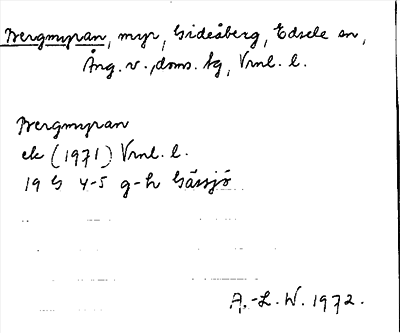 Bergmyran, myr, Gideåberg, Edsele sn,
Ång. v. doms. tg, Vrnl. l.
Bergmyran
ek (1971) Vrnl. l.
19 G 4-5 g-h Gåssjö
A.-L. W. 1972.